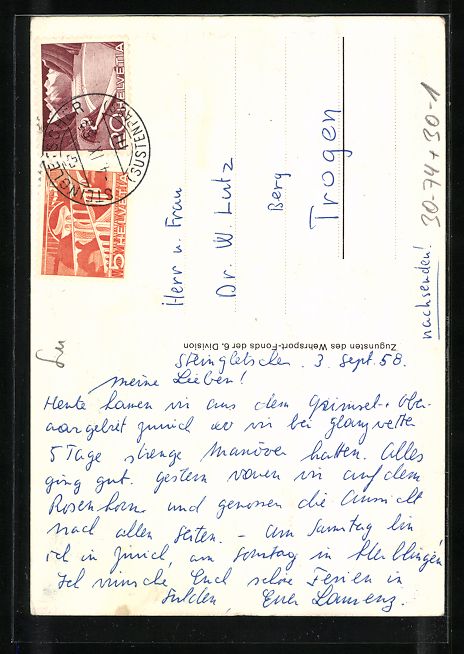 HELVETIA
10
HELVETIA
5
STEINGLETSCHER
(SUSTENPASS)
Herr u. Frau
Dr. W. Lutz
Berg
Trogen
nachsenden!
30-74 + 30-1
Zugunsten des Wehrsport-Fonds der 6. Division
Steingletscher, 3. Sept. 58.
Meine Lieben!
Heute kamen wir aus dem Grimsel- + Ober-
aargebiet zurück wo wir bei Glanzwetter
5 Tage strenge Manöver hatten. Alles
ging gut. Gestern waren wir auf dem
Rosenhorn und genossen die Aussicht
nach allen Seiten. – Am Samstag bin
ich in Zürich, am Sonntag in
Ich wünsche Euch schöne Ferien in
Sulden, Euer Laurenz.